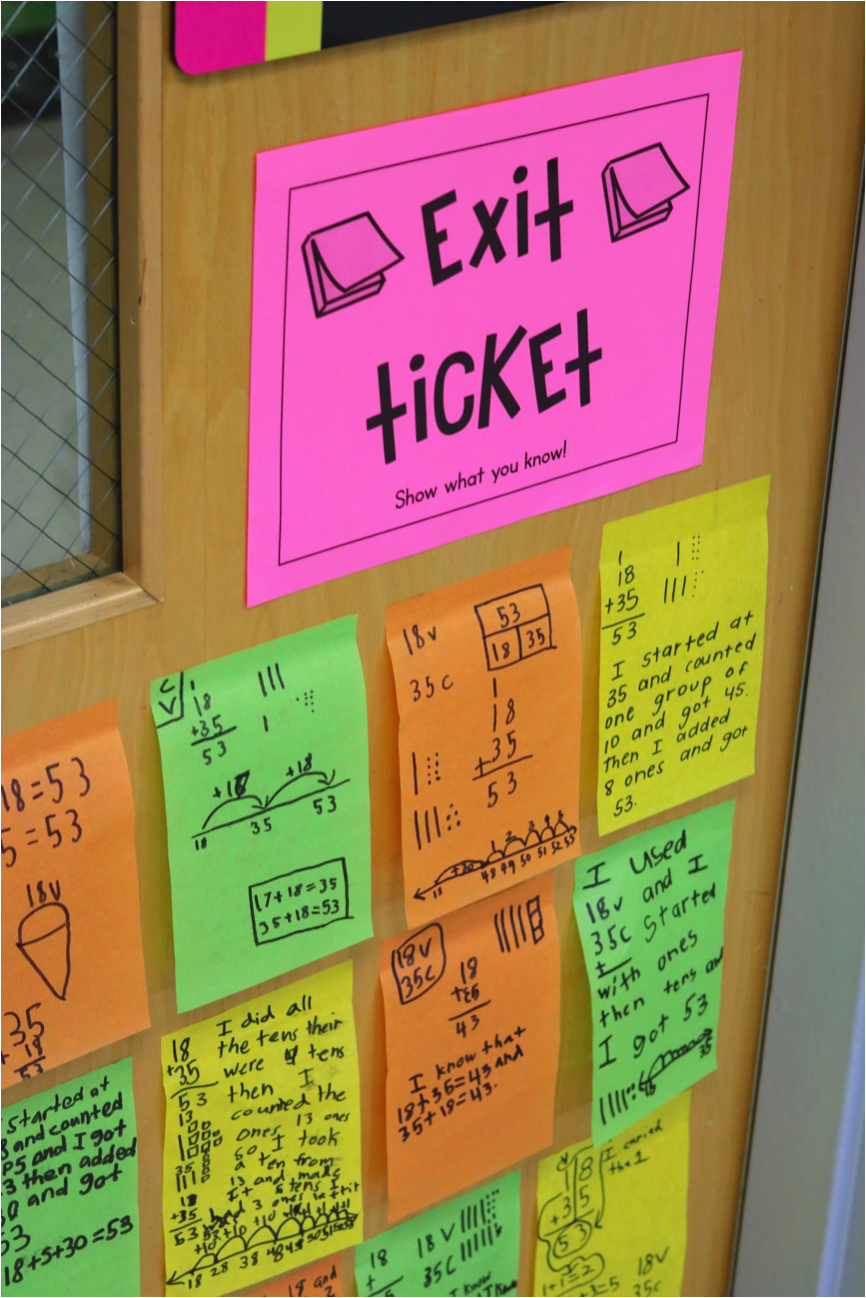 Exit
ticket
Show what you know!
1
18
+35
53
I started at
35 and counted
one group of
10 and got 45.
then I added
8 ones and got
53.
18v
35c
53
18 35
1
18
+35
53
18
48 49 50 51 52 53
C
V
1
18
+35
53
+18 +18
18 35 53
17+18=35
35+18=53
18=53
5=53
18v
35
+18
53
I used
18v and I
35c started
+
with ones
then tens and
I got 53
35
18V
35C
18
43
I know that
18+35=43 and
35+18=43.
18
+35
53
I did all
the tens their
were 4 tens
then I
counted the
ones, 13 ones
so I took
a ten from
13 and made
5 tens I
had 3 ones
13
35
18
+35
53
+10 +10 +10
18 28 38 48
started at
and counted
and I got
3 then added
30 and got
53
18+5+30=53
18
+35
53
I caried
the 1
1+1=2
+3=5
18V
35C
18
+
18V
35C
I know
18 and